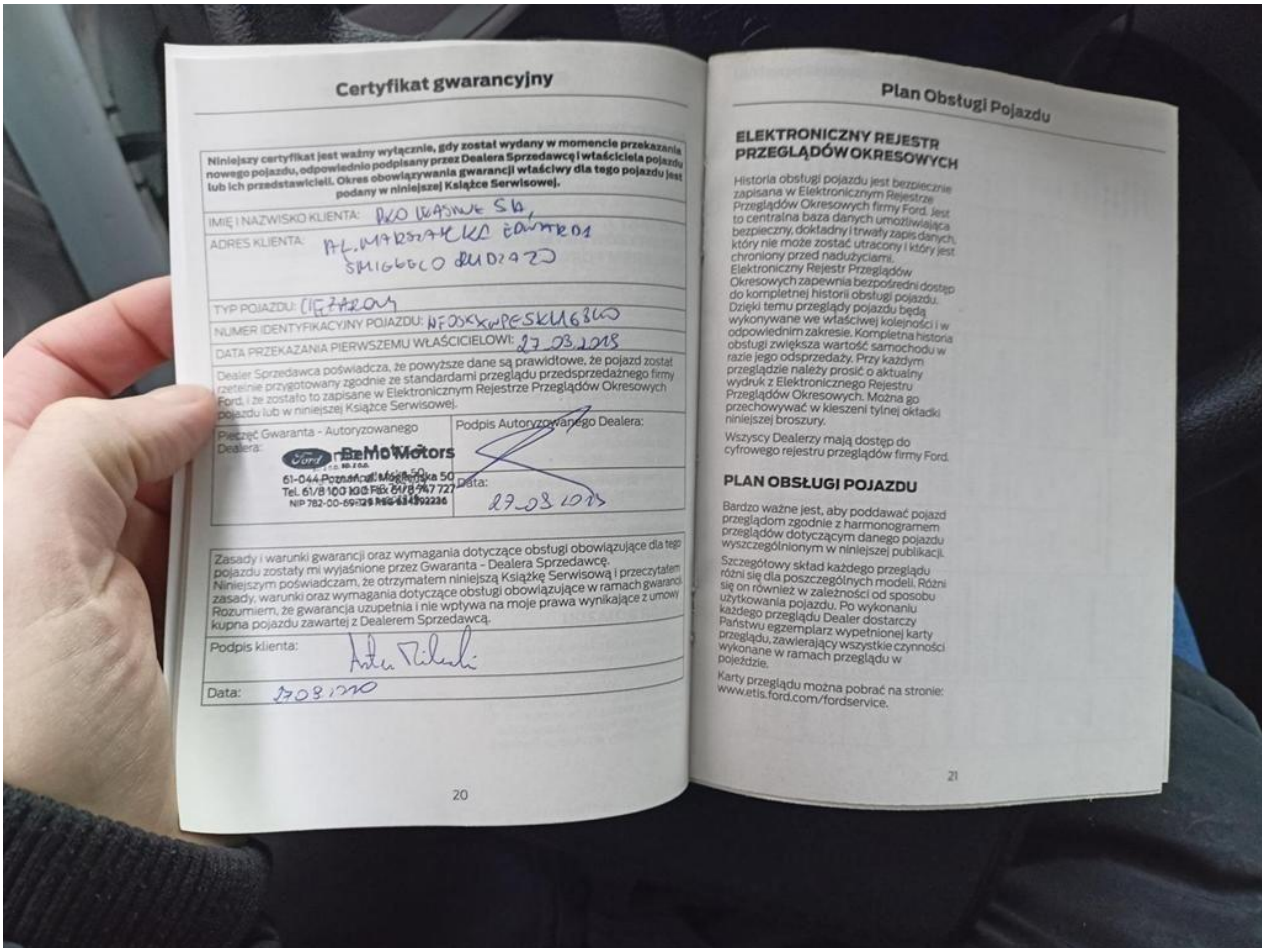 Certyfikat gwarancyjny
Niniejszy certyfikat jest ważny wyłącznie, gdy został wydany w momencie przekazania
nowego pojazdu, odpowiednio podpisany przez Dealera Sprzedawcę i właściciela pojazdu
lub ich przedstawicieli. Okres obowiązywania gwarancji właściwy dla tego pojazdu jest
podany w niniejszej Książce Serwisowej.
IMIĘ I NAZWISKO KLIENTA:
ADRES KLIENTA: AL. MARSZAŁKA EDWARDA
TYP POJAZDU: CIĘŻAROWY
NUMER IDENTYFIKACYJNY POJAZDU:
DATA PRZEKAZANIA PIERWSZEMU WŁAŚCICIELOWI: 27.03.2019
Dealer Sprzedawca poświadcza, że powyższe dane są prawidłowe, że pojazd został
rzetelnie przygotowany zgodnie ze standardami przeglądu przedsprzedażnego firmy
Ford, i że zostało to zapisane w Elektronicznym Rejestrze Przeglądów Okresowych
pojazdu lub w niniejszej Książce Serwisowej.
Pieczęć Gwaranta - Autoryzowanego
Dealera:
Ford BeMo Motors
61-044 Poznań, 50
NIP 782-00-69-129
Podpis Autoryzowanego Dealera:
Data:
27.03.2019
Zasady i warunki gwarancji oraz wymagania dotyczące obsługi obowiązujące dla tego
pojazdu zostały mi wyjaśnione przez Gwaranta - Dealera Sprzedawcę.
Niniejszym poświadczam, że otrzymałem niniejszą Książkę Serwisową i przeczytałem
zasady, warunki oraz wymagania dotyczące obsługi obowiązujące w ramach gwarancji
Rozumiem, że gwarancja uzupełnia i nie wpływa na moje prawa wynikające z umowy
kupna pojazdu zawartej z Dealerem Sprzedawcą.
Podpis klienta:
Data:
20
Plan Obsługi Pojazdu
ELEKTRONICZNY REJESTR
PRZEGLĄDÓW OKRESOWYCH
Historia obsługi pojazdu jest bezpiecznie
zapisana w Elektronicznym Rejestrze
Przeglądów Okresowych firmy Ford. Jest
to centralna baza danych umożliwiająca
bezpieczny, dokładny i trwały zapis danych,
który nie może zostać utracony i który jest
chroniony przed nadużyciami.
Elektroniczny Rejestr Przeglądów
Okresowych zapewnia bezpośredni dostęp
do kompletnej historii obsługi pojazdu.
Dzięki temu przeglądy pojazdu będą
wykonywane we właściwej kolejności i w
odpowiednim zakresie. Kompletna historia
obsługi zwiększa wartość samochodu w
razie jego odsprzedaży. Przy każdym
przeglądzie należy prosić o aktualny
wydruk z Elektronicznego Rejestru
Przeglądów Okresowych. Można go
przechowywać w kieszeni tylnej okładki
niniejszej broszury.
Wszyscy Dealerzy mają dostęp do
cyfrowego rejestru przeglądów firmy Ford.
PLAN OBSŁUGI POJAZDU
Bardzo ważne jest, aby poddawać pojazd
przeglądom zgodnie z harmonogramem
przeglądów dotyczącym danego pojazdu
wyszczególnionym w niniejszej publikacji.
Szczegółowy skład każdego przeglądu
różni się dla poszczególnych modeli. Różni
się on również w zależności od sposobu
użytkowania pojazdu. Po wykonaniu
każdego przeglądu Dealer dostarczy
Państwu egzemplarz wypełnionej karty
przeglądu, zawierający wszystkie czynności
wykonane w ramach przeglądu w
pojeździe.
Karty przeglądu można pobrać na stronie:
www.etis.ford.com/fordservice.
21